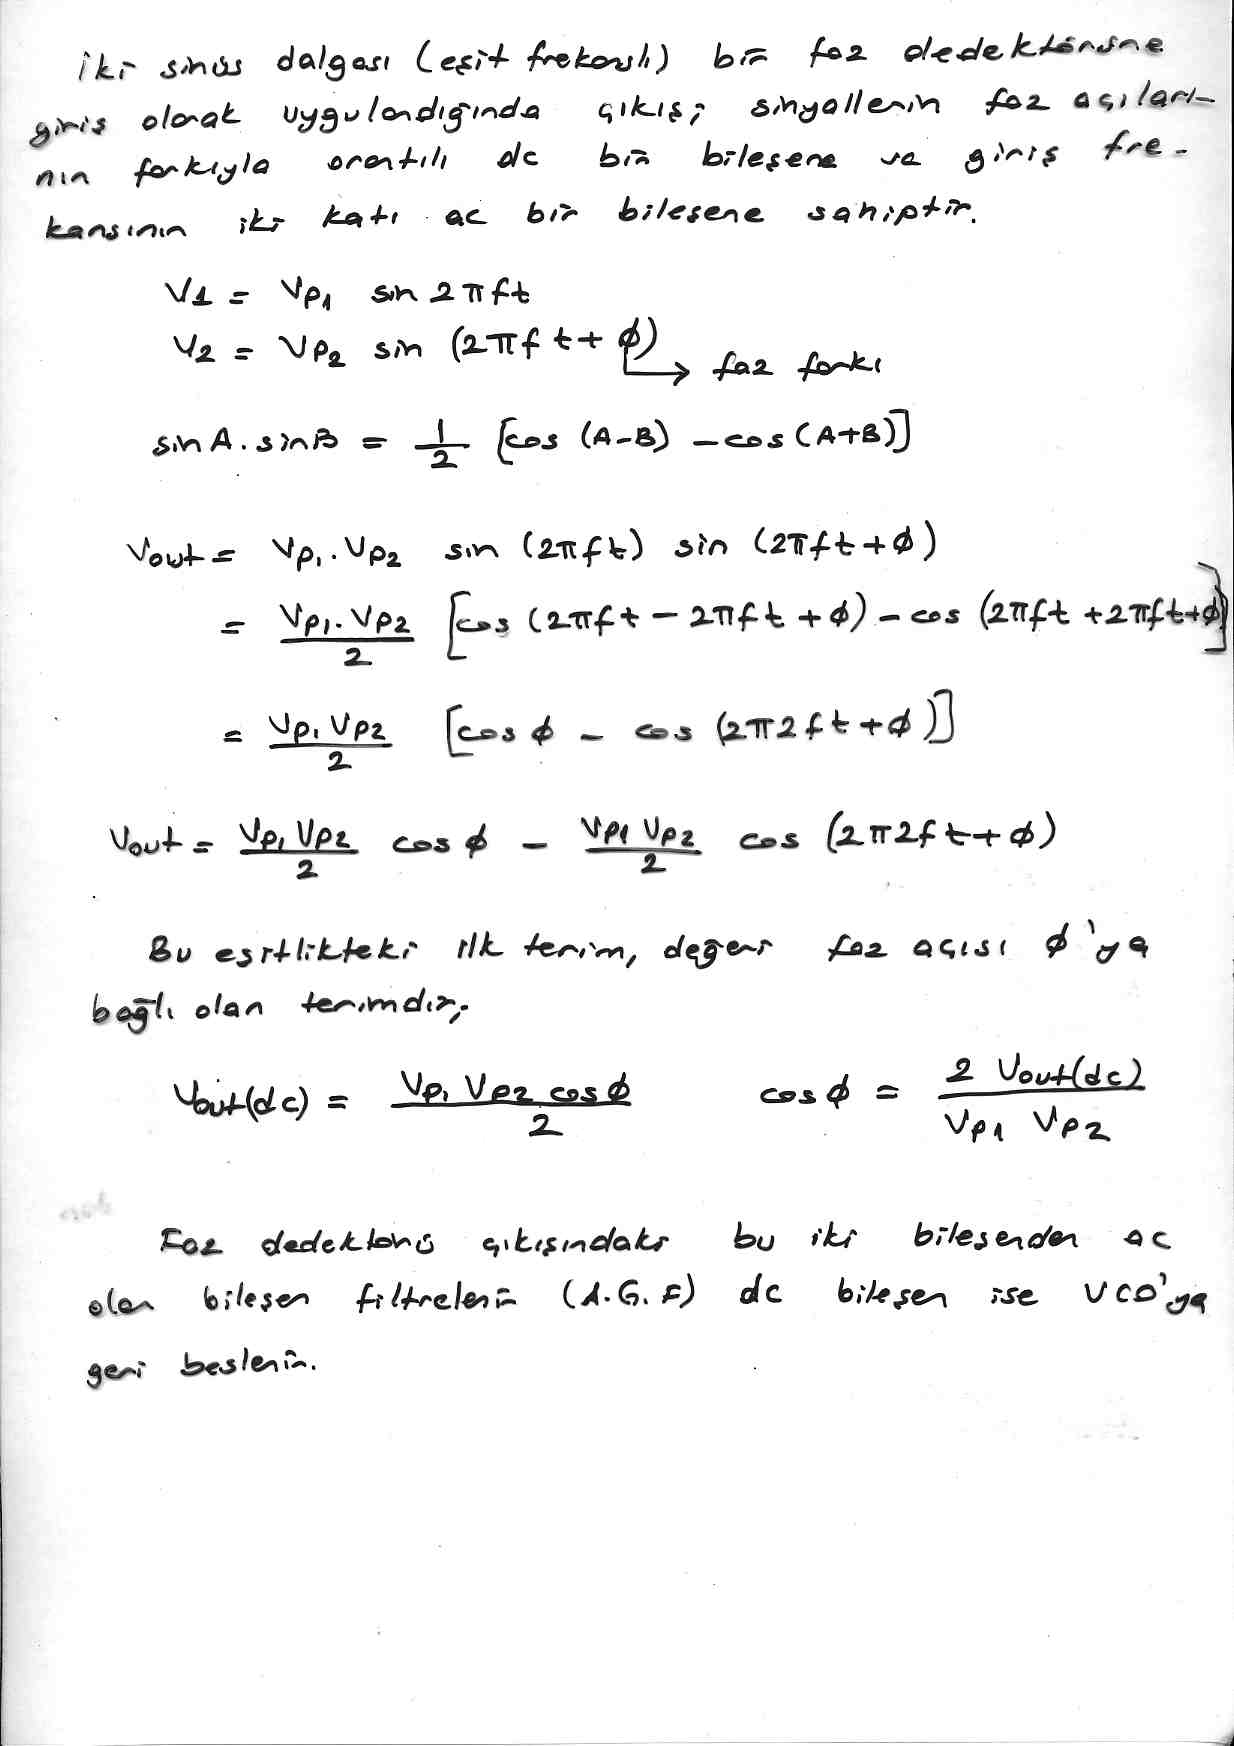 iki sinüs dalgası (eşit frekanslı) bir faz dedektörüne
giriş olarak uygulandığında çıkış; sinyallerin faz açıları-
nın farkıyla orantılı dc bir bileşene ve giriş fre-
kansının iki katı ac bir bileşene sahiptir.
V1 = Vp1 sin 2πft
V2 = Vp2 sin (2πft+φ)
→ faz farkı
sinA.sinB = 1/2 [cos (A-B) -cos(A+B)]
Vout = Vp1.Vp2 sin (2πft) sin (2πft+φ)
= Vp1.Vp2/2 [cos (2πft - 2πft +φ) - cos (2πft +2πft+φ)]
= Vp1 Vp2/2 [cos φ - cos (2π2ft+φ)]
Vout = Vp1 Vp2/2 cos φ - Vp1 Vp2/2 cos (2π2ft+φ)
Bu eşitlikteki ilk terim, değeri faz açısı φ'ya
bağlı olan terimdir;
Vout(dc) = Vp1 Vp2 cos φ/2 cos φ = 2 Vout(dc)/Vp1 Vp2
Faz dedektörü çıkışındaki bu iki bileşenden ac
olan bileşen filtrelenir (A.G.F) dc bileşen ise VCO'ya
geri beslenir.